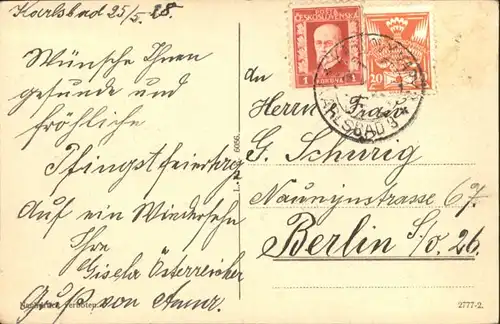 Karlsbad 25/5. 28.
Wünsche Ihnen
gesunde und
fröhliche
Pfingstfeiertage
Auf ein Wiedersehn
Ihre
Gisela Österreicher
Gruß von
Nachdruck verboten.
L. 6096.
POŠTA
ČESKOSLOVENSKÁ
1 KORUNA 1
20
KARLSBAD 3
An
Herrn Frau
G. Schurig
Naunynstrasse 67.
Berlin S/o. 26.
2777-2.